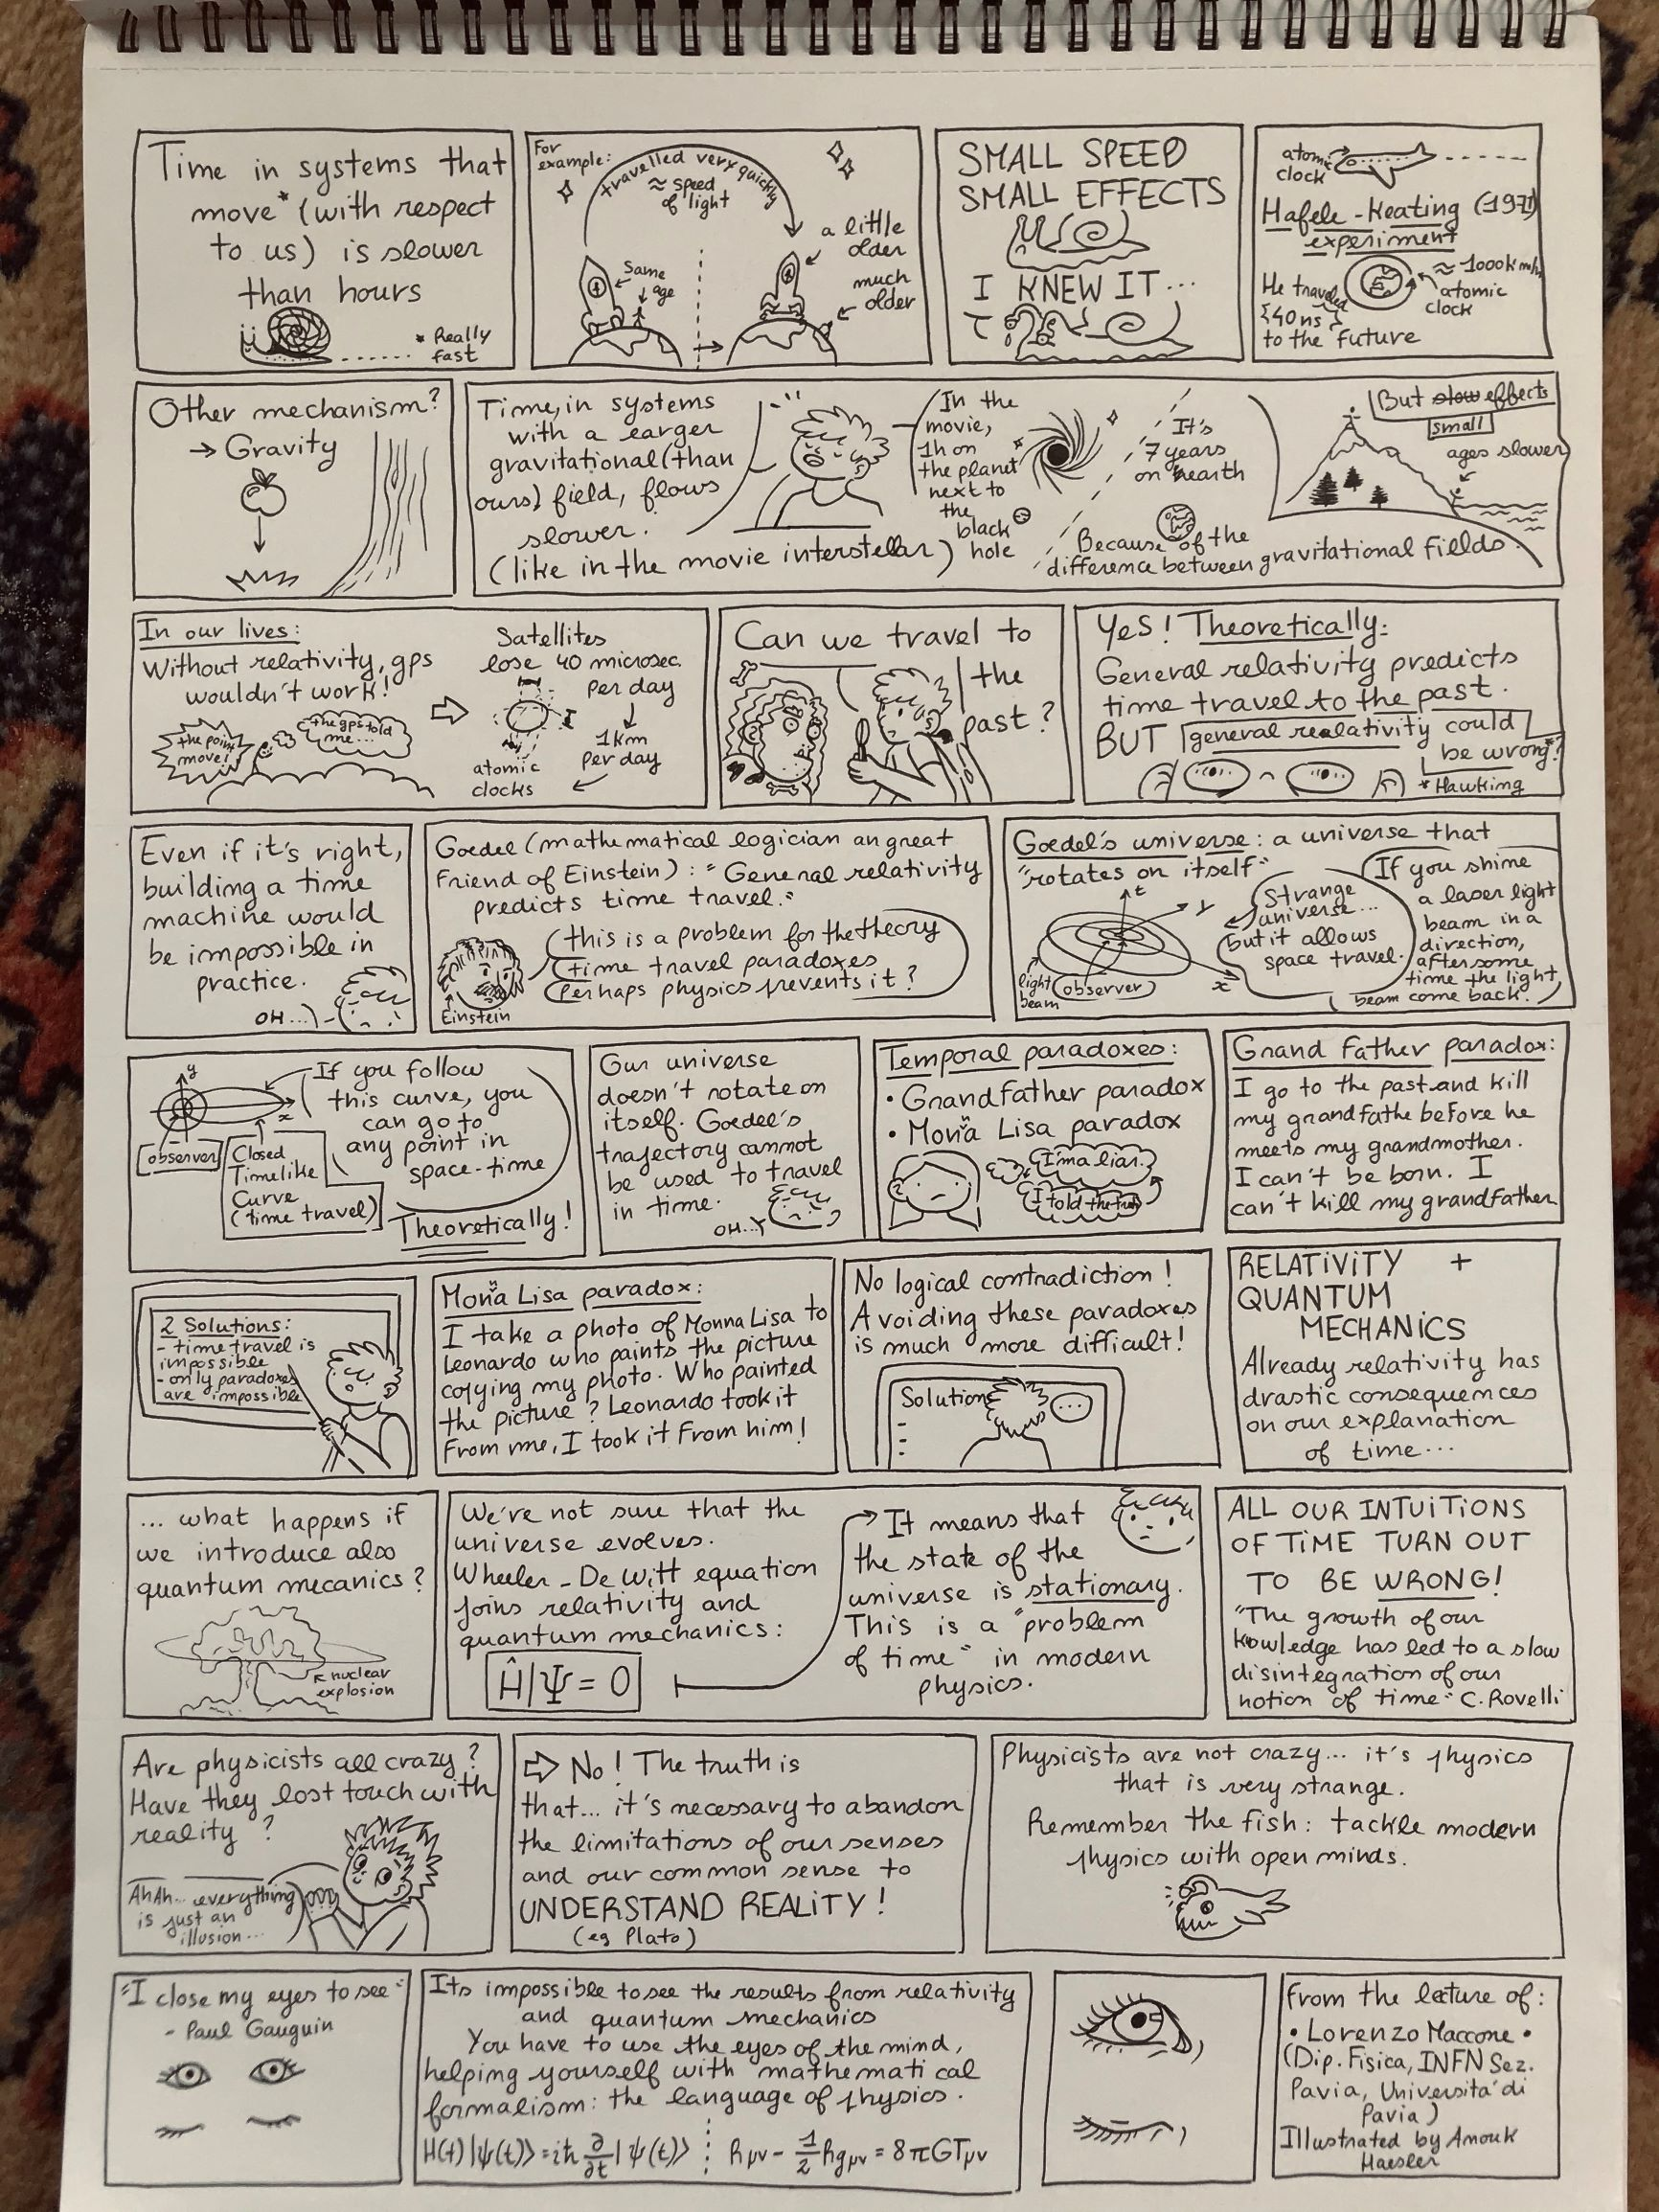 Time in systems that
move* (with respect
to us) is slower
than hours
* Really
fast
For
example:
travelled very quickly
≈ speed
of light
Same
age
a little
older
much
older
SMALL SPEED
SMALL EFFECTS
I KNEW IT...
atomic
clock
Hafele-Keating (1971)
experiment
≈ 1000km/h
atomic
clock
He traveled
40ns
to the future
Other mechanism?
→ Gravity
Time, in systems
with a earger
gravitational (than
ours) field, flows
slower.
(like in the movie interstellar)
In the
movie,
1h on
the planet
next to
the
black
hole
It's
7 years
on hearth
Because of the
difference between gravitational fields.
But slow effects
small
ages slower
In our lives:
Without relativity, gps
wouldn't work!
the point
move!
the gps told
me...
Satellites
lose 40 microsec.
per day
1km
per day
atomic
clocks
Can we travel to
the
past?
Yes! Theoretically:
General relativity predicts
time travel to the past.
BUT general realativity could
be wrong*?
* Hawking
Even if it's right,
building a time
machine would
be impossible in
practice.
OH...
Goedel (mathematical logician an great
Friend of Einstein): "General relativity
predicts time travel."
this is a problem for the theory
time travel paradoxes
Perhaps physics prevents it?
Einstein
Goedel's universe: a universe that
"rotates on itself"
t
y
x
light
beam
observer
Strange
universe...
but it allows
space travel.
If you shine
a laser light
beam in a
direction,
after some
time the light
beam come back.
y
x
observer
Closed
Timelike
Curve
(time travel)
If you follow
this curve, you
can go to
any point in
space-time
Theoretically!
Our universe
doesn't rotate on
itself. Goedel's
trajectory cannot
be used to travel
in time.
OH...
Temporal paradoxes:
• Grandfather paradox
• Monna Lisa paradox
I'm a liar.
I told the truth
Grand Father paradox:
I go to the past and kill
my grandfathe before he
meets my grandmother.
I can't be born. I
can't kill my grandfather
2 Solutions:
- time travel is
impossible
- only paradoxes
are impossible
Monna Lisa paradox:
I take a photo of Monna Lisa to
Leonardo who paints the picture
copying my photo. Who painted
the picture? Leonardo took it
From me, I took it From him!
No logical contradiction!
Avoiding these paradoxes
is much more difficult!
Solutions
-
-
-
...
RELATIVITY +
QUANTUM
MECHANICS
Already relativity has
drastic consequences
on our explanation
of time...
... what happens if
we introduce also
quantum mecanics?
nuclear
explosion
We're not sure that the
universe evolves.
Wheeler-De Witt equation
joins relativity and
quantum mechanics:
Ĥ|Ψ = 0
It means that
the state of the
universe is stationary.
This is a "problem
of time" in modern
physics.
ALL OUR INTUITIONS
OF TIME TURN OUT
TO BE WRONG!
"The growth of our
knowledge has led to a slow
disintegration of our
notion of time" C. Rovelli
Are physicists all crazy?
Have they lost touch with
reality?
AhAh... everything
is just an
illusion...
⇒ No! The truth is
that... it's necessary to abandon
the limitations of our senses
and our common sense to
UNDERSTAND REALITY!
(eg Plato)
Physicists are not crazy... it's physics
that is very strange.
Remember the fish: tackle modern
physics with open minds.
"I close my eyes to see"
- Paul Gauguin
Its impossible to see the results from relativity
and quantum mechanics
You have to use the eyes of the mind,
helping yourself with mathematical
formalism: the language of physics.
H(t)|ψ(t)⟩ = iħ ∂/∂t |ψ(t)⟩ ⋮ Rμν - 1/2 Rgμν = 8πGTμν
From the lecture of:
• Lorenzo Maccone •
(Dip. Fisica, INFN Sez.
Pavia, Universita' di
Pavia)
Illustrated by Anouk
Haesler